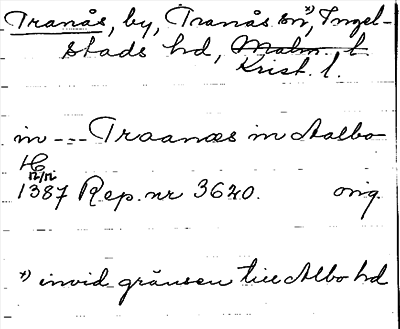 Tranås, by, Tranås sn *), Ingel-
stads hd, Malm. l
Krist. l.
in --- Traanæs in Aalbo
H
12/12
1387 Rep. nr 3620. orig.
*) invid gränsen till Albo hd